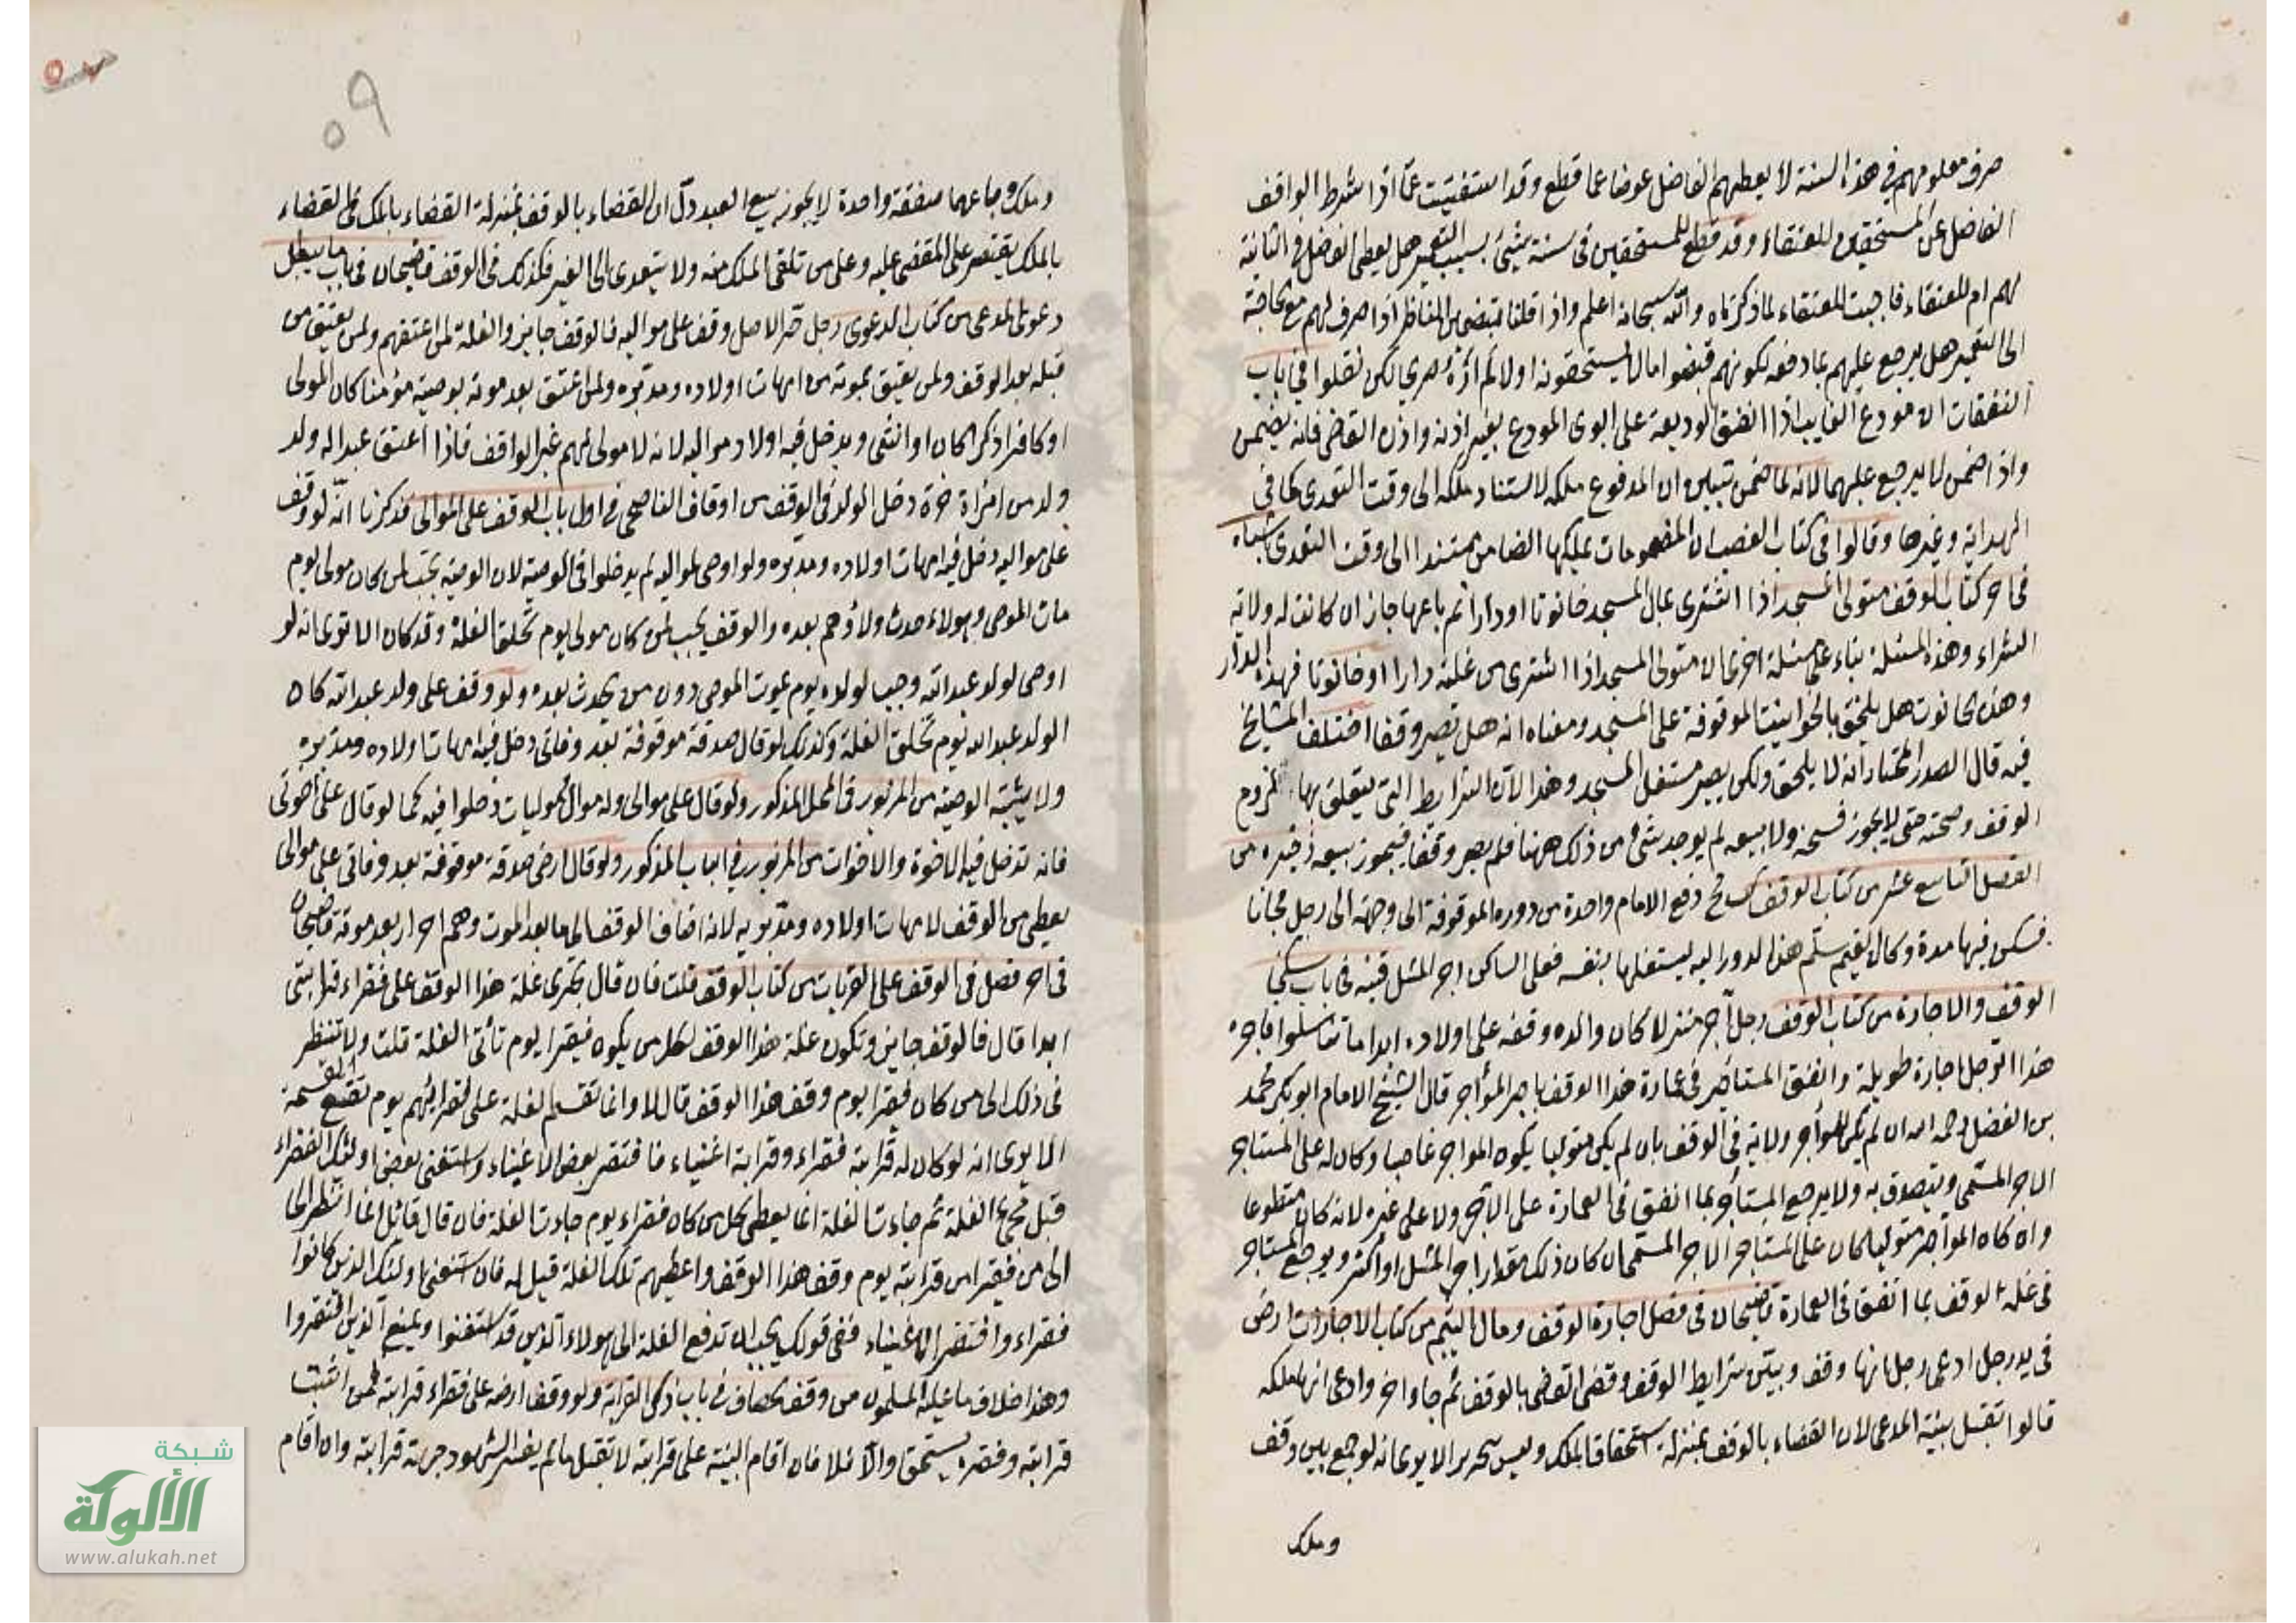 صرف معلومهم في هذه السنة لا يعطيهم الفاضل عوضا عما قطع وقد استفتيت عما اذا شرط الواقف
الفاضل عن المستحقين للعتقاء وقد قطع للمستحقين في سنة شيئ بسبب التعمير هل يعطي الفاضل في الثانية
لهم ام للعتقاء فاجبت للعتقاء لما ذكرناه والله سبحانه اعلم واذا قلنا بتضمين الناظر اذا صرف لهم مع حاجة
الى التعمير هل يرجع عليهم بما دفعه لكونهم قبضوا مالا يستحقونه اولا لم اره صريحا لكن نقلوا في باب
النفقات ان مودع الغايب اذا انفق الوديعة على ابوى المودع بغير اذنه واذن القاضي فانه يضمن
واذا ضمن لا يرجع عليهما لانه لما ضمن تبين ان المدفوع ملكه لاستناد ملكه الى وقت التعدى كما في
الهداية وغيرها وقالوا في كتاب الغصب ان المضمومات يملكها الضامن مستندا الى وقت التعدى اشباه
في اخر كتاب الوقف متولى المسجد اذا اشترى بمال المسجد حانوتا او دارا ثم باعها جاز ان كانت له ولاية
الشراء وهذه المسئلة بناء على مسئلة اخرى ان متولى المسجد اذا اشترى من غلته دارا او حانوتا فهذه الدار
وهذه الحانوت هل يلحق بالحوانيت الموقوفة على المسجد ومعناه انه هل تصير وقفا اختلف المشايخ
فيه قال الصدر المختار انه لا يلحق ولكن يصير مستغل المسجد وهذا لان الشرايط التي يتعلق بها لزوم
الوقف وصحته حتى لا يجوز فسخه ولا بيعه لم يوجد شئ من ذلك ههنا فلم يصر وقفا فيجوز بيعه ذخيره من
الفصل التاسع عشر من كتاب الوقف دفع الامام واحدة من دوره الموقوفة الى وجهته الى رجل مجانا
فسكن فيها مدة وكان القيم سلم هذه الدور اليه ليستغلها بنفسه فعلى الساكن اجر المثل قنيه في باب سكنى
الوقف والاجارة من كتاب الوقف رجل آجر منزلا كان والده وقفه على اولاده ابدا ما تناسلوا فاجره
هذا الرجل اجارة طويلة وانفق المستاجر في عمارة هذا الوقف بامر المؤاجر قال الشيخ الامام ابو بكر محمد
بن الفضل رحمه الله ان لم يكن للمؤاجر ولاية في الوقف بان لم يكن متوليا يكون المواجر غاصبا وكان له على المستاجر
الاجر المسمى ويتصدق به ولا يرجع المستأجر بما انفق في العمارة على الآجر ولا على غيره لانه كان متطوعا
وان كان المواجر متوليا كان على المستاجر الاجر المسمى ان كان ذلك مقدار اجر المثل او اكثر ويرجع المستاجر
في غلة الوقف بما انفق في العمارة قاضيخان في فصل اجارة الوقف ومال اليتيم من كتاب الاجارات ارض
في يد رجل ادعى رجل انها وقف وبين شرايط الوقف وقضى القاضي بالوقف ثم جاء اخر وادعى انها ملكه
قالوا تقبل بينة المدعى لان القضاء بالوقف بمنزلة استحقاق الملك وليس بتحرير الا يرى انه لو جمع بين وقف
وملك
٥٩
وملك وباعهما صفقة واحدة لا يجوز بيع العبد دل ان القضاء بالوقف بمنزلة القضاء بالملك في القضاء
بالملك يقتصر على المقضى عليه وعلى من تلقى الملك منه ولا يتعدى الى الغير فكذلك في الوقف قاضيخان في باب ما يبطل
دعوى المدعى من كتاب الدعوى رجل حر الاصل وقف على مواليه فالوقف جايز والغلة لمن اعتقهم ولمن يعتق من
قبله بعد الوقف ولمن يعتق بموته من امهات اولاده ومدبره ولمن اعتق بعد موته بوصية مؤمنا كان المولى
او كافرا ذكرا كان او انثى ويدخل فيه اولاد مواليه لانه لا مولى لهم غير الواقف فاذا اعتق عبدا له ولد
ولد من امراة حرة دخل الولد في الوقف من اوقاف الناصحي في اول باب الوقف على الموالى قد ذكرنا انه لو وقف
على مواليه دخل فيه امهات اولاده ومدبره ولو اوصى لمواليه لم يدخلوا في الوصية لان الوصية يجب لمن كان مولى يوم
مات الموصى وهولاء حدث ولاؤهم بعده والوقف يجب لمن كان مولى يوم تخلق الغلة وقد كان الا ترى انه لو
اوصى لولد عبد الله وجب لولده يوم يموت الموصى دون من يحدث بعده ولو وقف على ولد عبد الله كان
الولد عبد الله يوم تخلق الغلة وكذلك لو قال صدقة موقوفة بعد وفاتي دخل فيه امهات اولاده ومدبره
ولا يشبه الوصية من المزبور في المحل المذكور ولو قال على موالى وله موال وموليات دخلوا فيه كما لو قال على اخوتي
فانه تدخل فيه الاخوة والاخوات من المزبور في الباب المذكور ولو قال ارضى صدقة موقوفة بعد وفاتي على موالى
يعطى من الوقف لامهات اولاده ومدبريه لانه اضاف الوقف الى ما بعد الموت وهم احرار بعد موته قاضيخان
في اخر فصل في الوقف على القربات من كتاب الوقف قلت فان قال تجرى غلة هذا الوقف على فقراء قرابتى
ابدا قال فالوقف جايز وتكون غلة هذا الوقف لكل من يكون فقيرا يوم تأتى الغلة قلت ولا تنظر
في ذلك الى من كان فقيرا يوم وقف هذا الوقف قال لا وانما تقسم الغلة على فقرائهم يوم تقع القسمة
الا يرى انه لو كان له قرابة فقراء وقرابة اغنياء فافتقر بعض الاغنياء واستغنى بعض اولئك الفقراء
قبل مجئ الغلة ثم جاءت الغلة انما يعطى لكل من كان فقراء يوم جاءت الغلة فان قال قائل انما انظر الى
الى من فقيرا من قرابته يوم وقف هذا الوقف واعطيهم تلك الغلة قيل له فان استغنى اولئك الذين كانوا
فقراء وافتقر الاغنياء ففى قولك يجب ان تدفع الغلة الى هولاء الذين قد استغنوا ويمنع الذين افتقروا
وهذا خلاف ما عليه المسلمون من وقف خصاف في باب ذكر القرابة ولو وقف ارضه على فقراء قرابته فمن اثبت
قرابته وفقره يستحق والا فلا فان اقام البينة على قرابته لا تقبل ما لم يفسر الشهود جهة قرابته وان اقام
شبكة
الألوكة
www.alukah.net